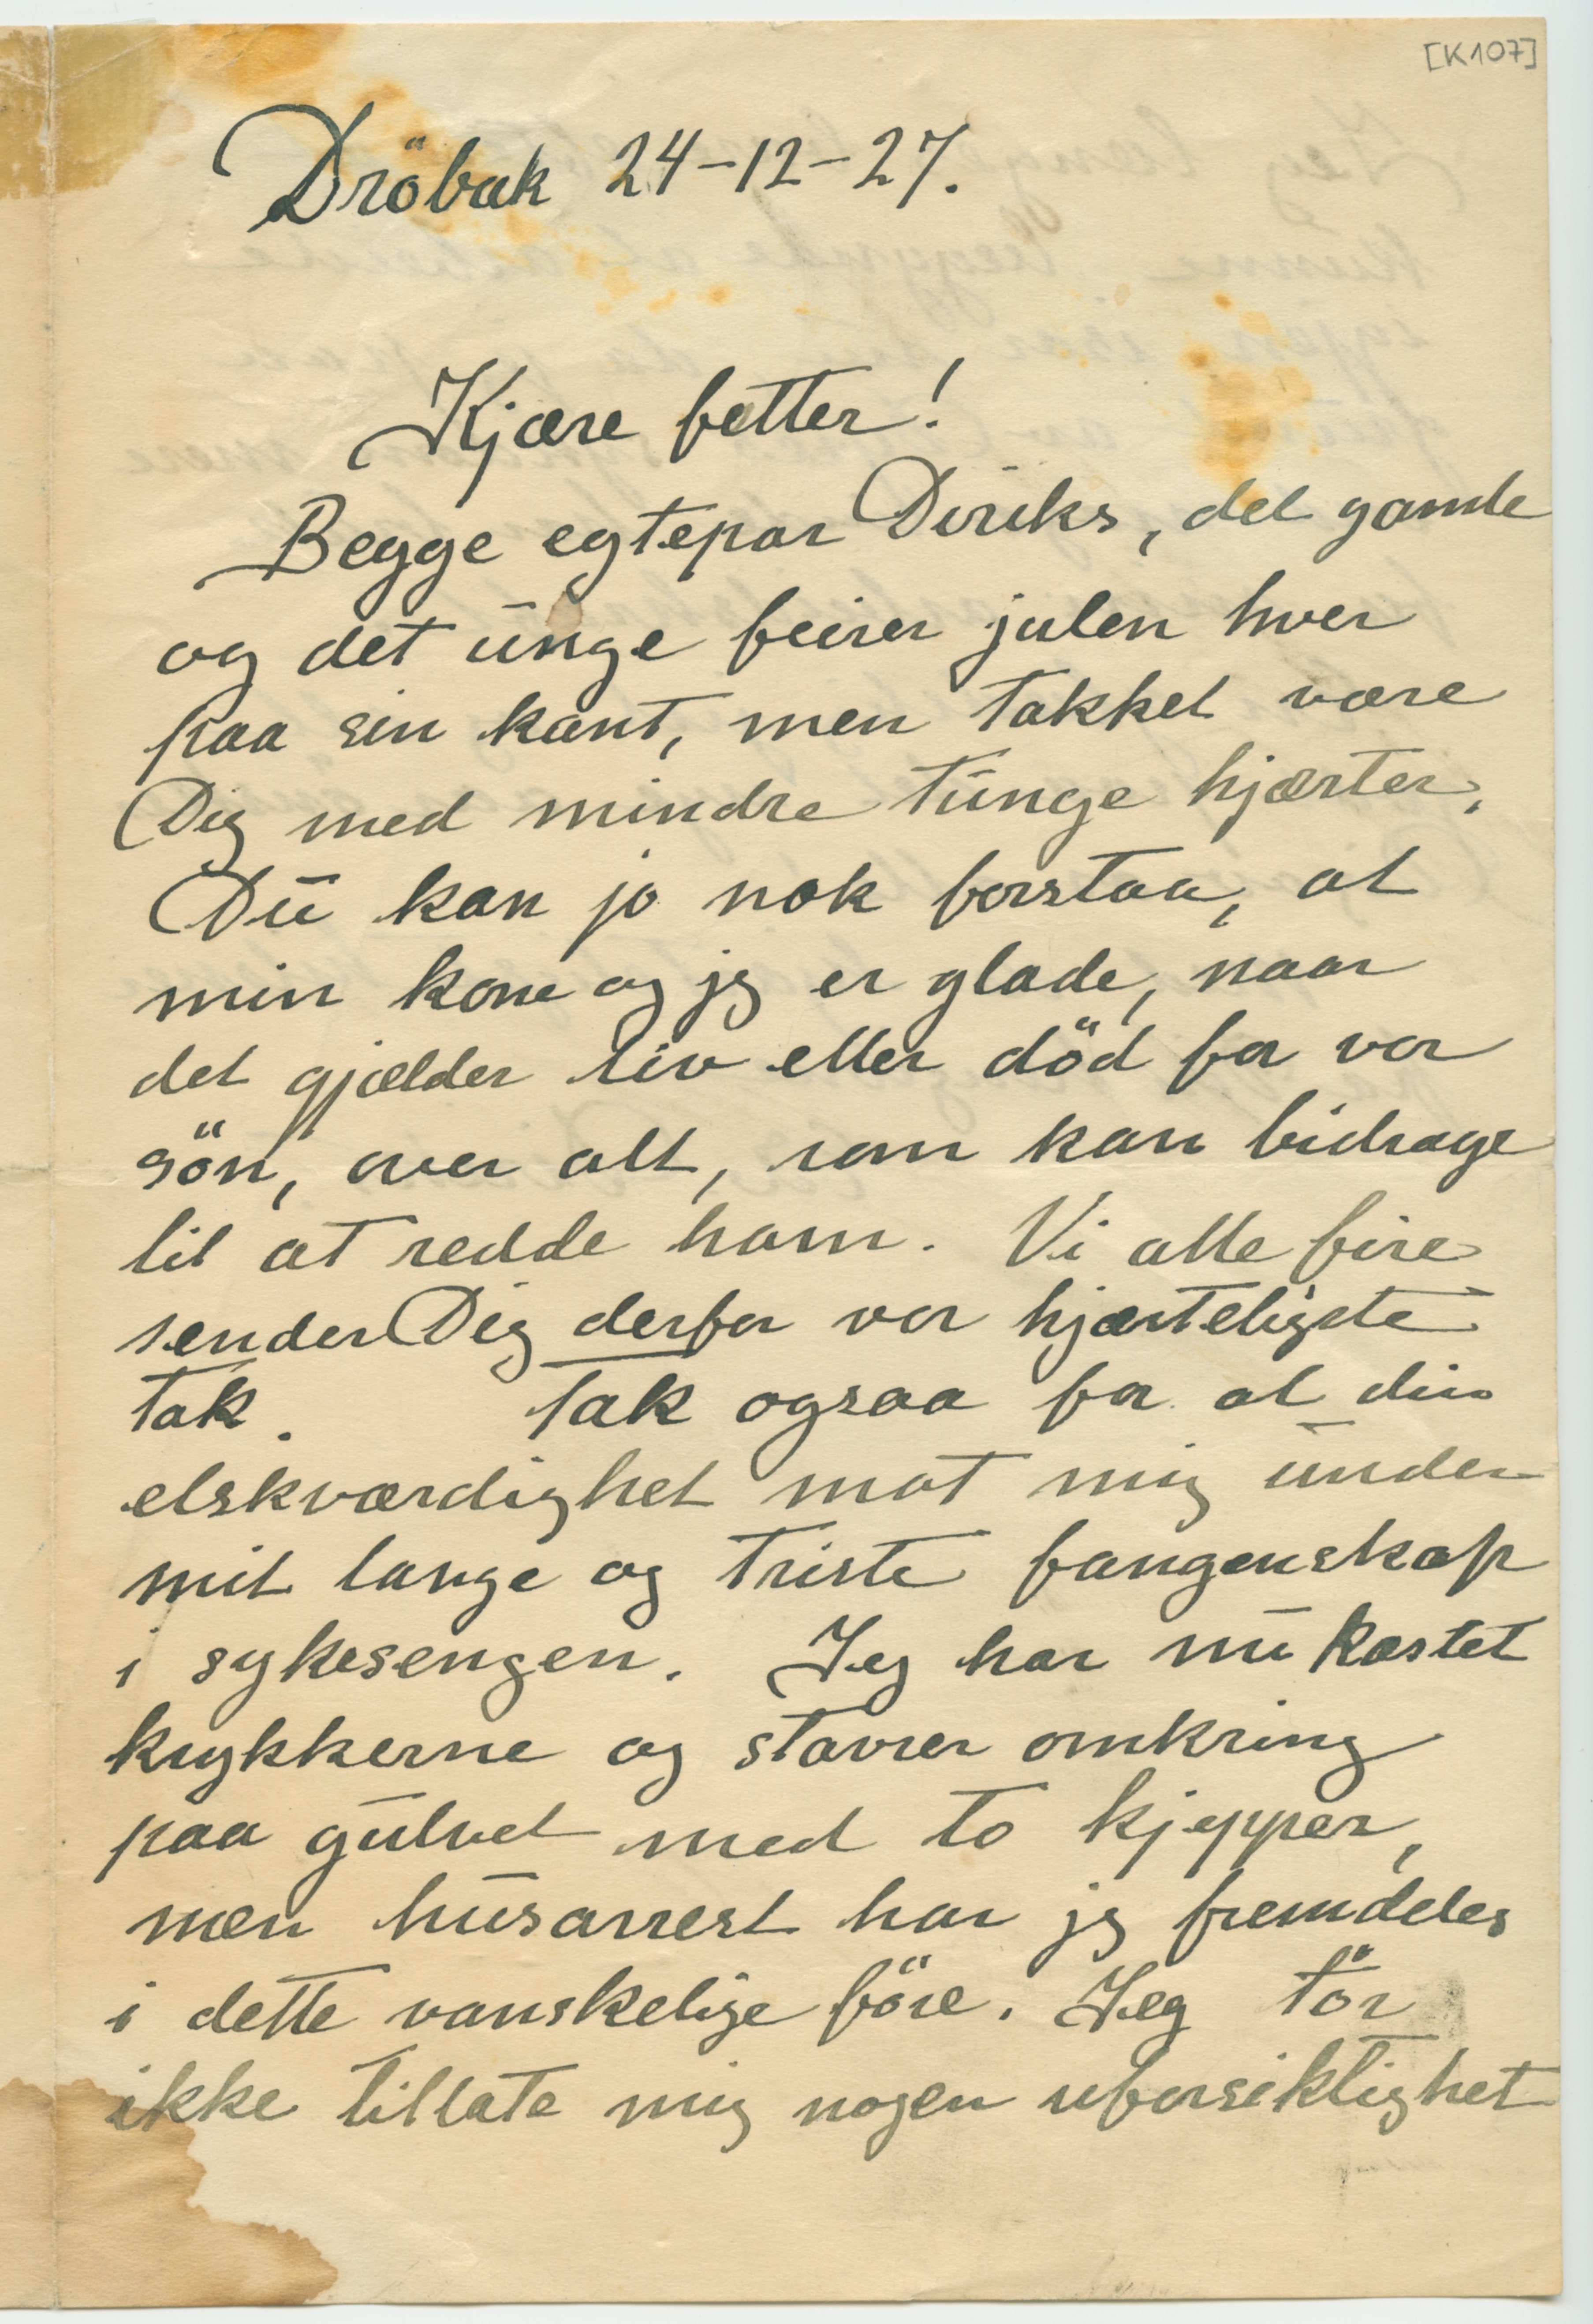 [K107]
Dröbak 24-12-27.
Kjære fetter!
Begge egtepar Diriks, det gamle
og det unge feirer julen hver
paa sin kant, men takket være
Dig med mindre tunge hjærter.
Du kan jo nok forstaa, at
min kone og jeg er glade, naar
det gjælder liv eller död for vor
sön, over alt, som kan bidrage
til at redde ham. Vi alle fire
sender Dig derfor vor hjærteligste
tak. Tak ogsaa for al din
elskværdighet mot mig under
mit lange og triste fangenskap
i sykesengen. Jeg har nu kastet
krykkerne og stavrer omkring
paa gulvet med to kjepper,
men husarrest har jeg fremdeles
i dette vanskelige före. Jeg tör
ikke tillate mig nogen uforsiktighet